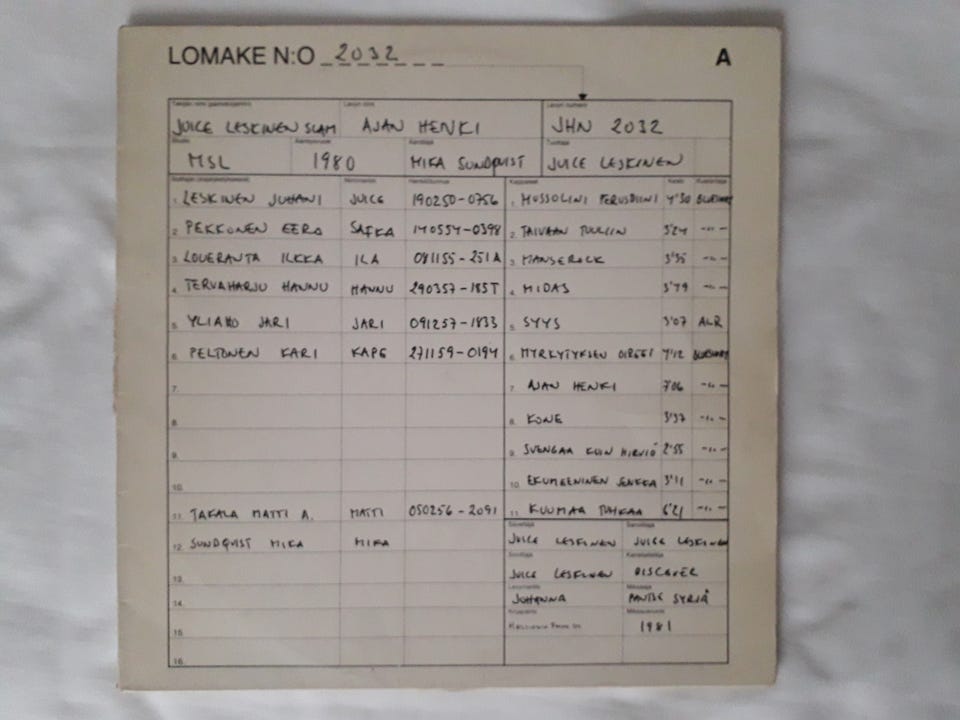 LOMAKE N:O 2032 A
JUICE LESKINEN SLAM AJAN HENKI JHN 2032
MSL 1980 MIKA SUNDQVIST JUICE LESKINEN
1. LESKINEN JUHANI JUICE 190250-0756 1. MUSSOLINI PERUSDIINI 4'30
2. PEKKONEN EERO SAFKA 140554-0398 2. TAIVAAN TUULIIN 3'24 -"-
3. LOUERANTA ILKKA ILA 081155-251A 3. MANSEROCK 3'35 -"-
4. TERVAHARJU HANNU HANNU 290357-185T 4. MIDAS -"-
5. YLIAHO JARI JARI 091257-1833 5. SYYS 3'07 ALR
6. PELTONEN KARI KAPE 271159-0194 6. MYRKYTYKSEN OIREET
7. 7. AJAN HENKI -"-
8. 8. KONE 3'37 -"-
9. 9. SVENGAA KUIN HIRVIÖ 2'55 -"-
10. 10. EKUMEENINEN JENKKA 3'11 -"-
11. TAKALA MATTI A. MATTI 050256-2091 11. KUUMAA TUHKAA 6'21 -"-
12. SUNDQVIST MIKA MIKA JUICE LESKINEN JUICE LESKINEN
13. JUICE LESKINEN DISCOVER
14. JOHANNA PANTSE SYRJÄ
15. 1981
16.